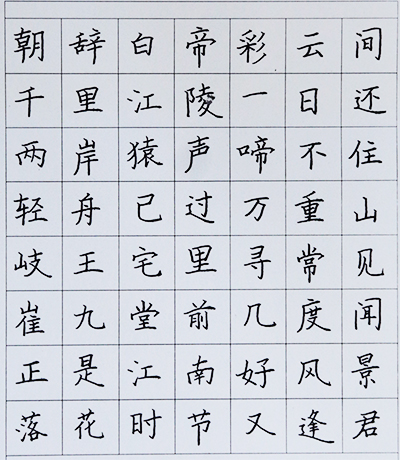 朝辞白帝彩云间
千里江陵一日还
两岸猿声啼不住
轻舟已过万重山
岐王宅里寻常见
崔九堂前几度闻
正是江南好风景
落花时节又逢君